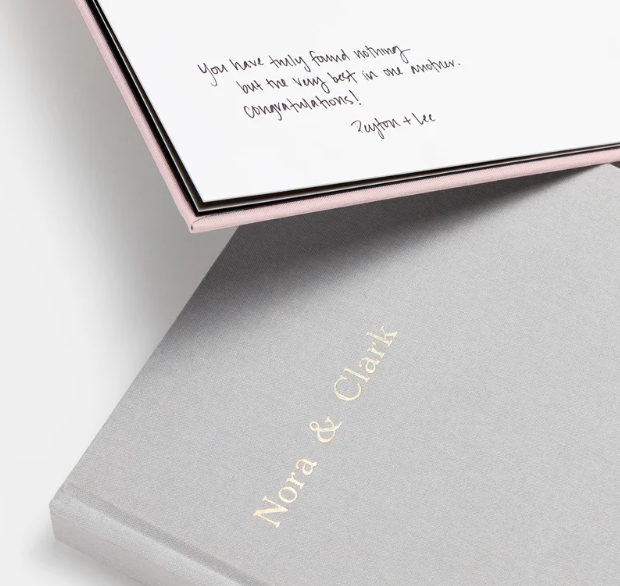 You have truly found nothing
but the very best in one another.
congratulations!
Peyton + Lee
Nora & Clark